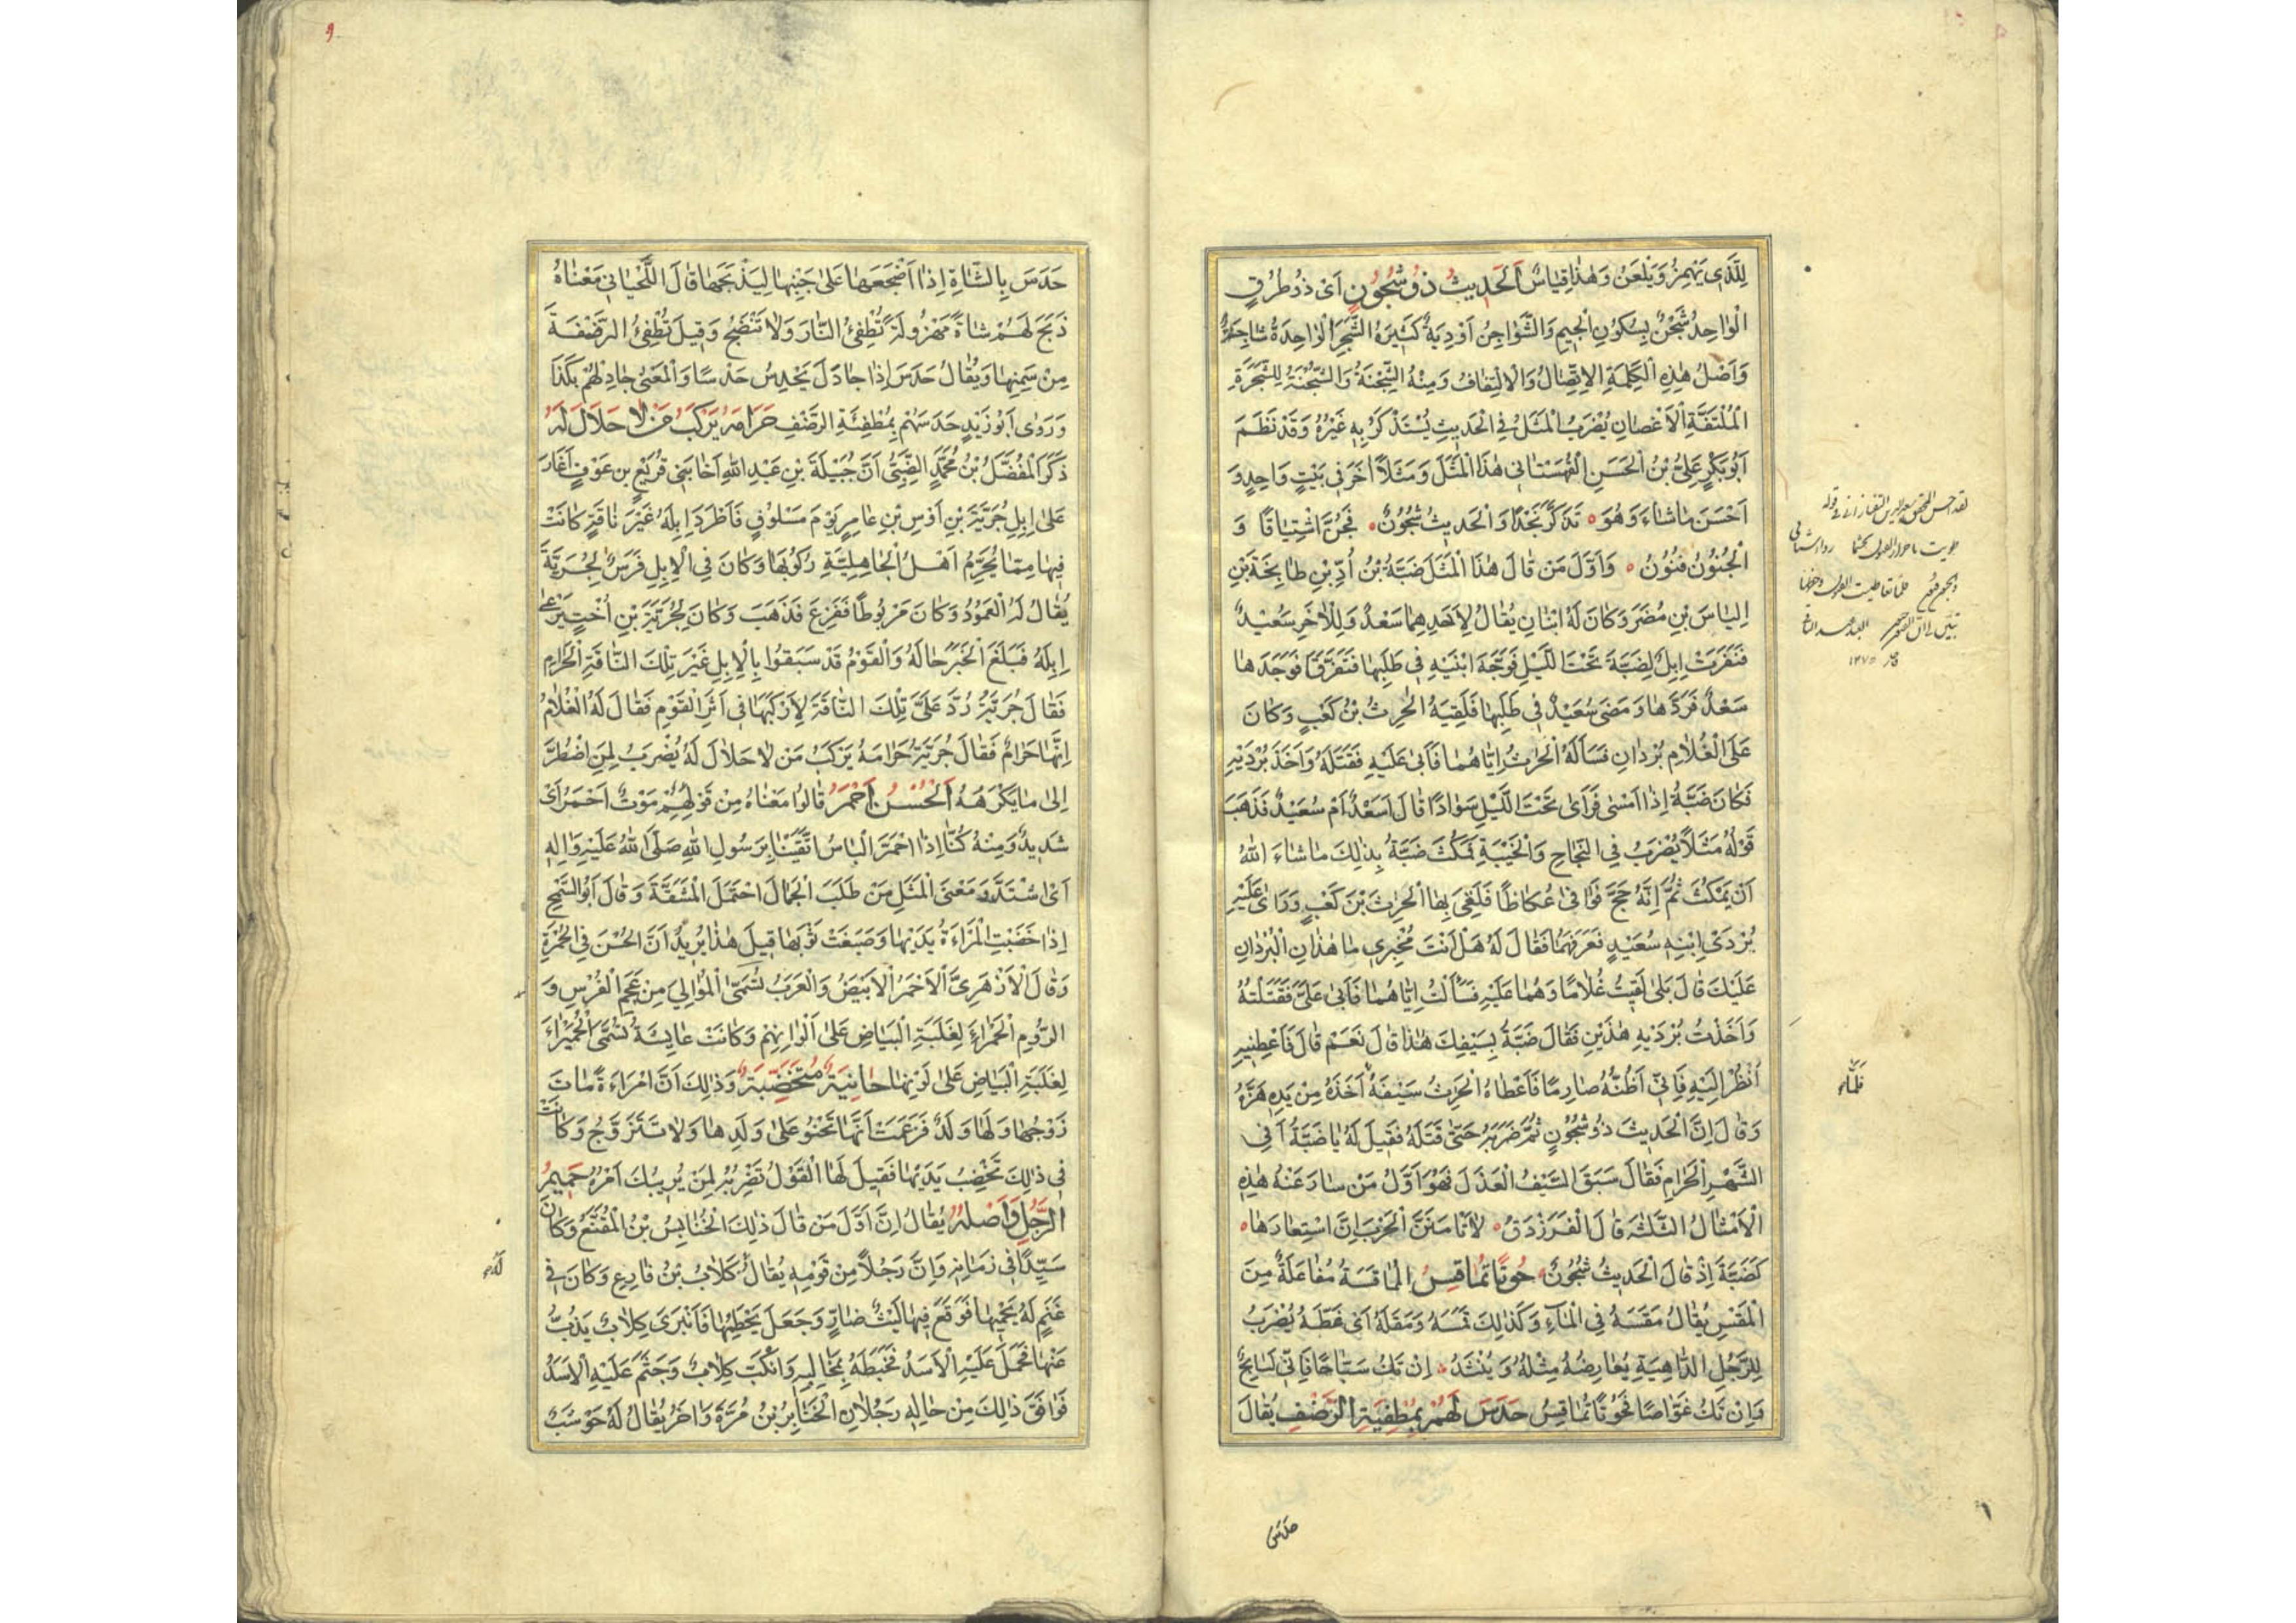 لِلَّذِي يَهْمِزُ وَيَلْعَنُ وَهٰذَا قِيَاسٌ اَلْحَدِيثُ ذُو شُجُونٍ اَيْ ذُو طُرُقٍ
الْوَاحِدُ شَجْنٌ بِسُكُونِ الْجِيمِ وَالشَّوَاجِنُ اَوْدِيَةٌ كَثِيرَةُ الشَّجَرِ الْوَاحِدَةُ شَاجِنَةٌ
وَاَصْلُ هٰذِهِ الْكَلِمَةِ الْاِتِّصَالُ وَالْاِلْتِفَافُ وَمِنْهُ الشِّجْنَةُ وَالشُّجْنَةُ لِلشَّجَرَةِ
الْمُلْتَفَّةِ الْاَغْصَانِ يُضْرَبُ الْمَثَلُ فِي الْحَدِيثِ يُسْتَذْكَرُ بِهِ غَيْرُهُ وَقَدْ نَظَمَ
اَبُوبَكْرٍ عَلِيُّ بْنُ الْحَسَنِ الْقُهُسْتَانِي هٰذَا الْمَثَلَ وَمَثَلًا اٰخَرَ فِي بَيْتٍ وَاحِدٍ وَ
اَحْسَنَ مَا شَاءَ وَهُوَ ٥ تَذَكَّرَ نَجْدًا وَالْحَدِيثُ شُجُونٌ ٥ فَجُنَّ اشْتِيَاقًا وَ
الْجُنُونُ فُنُونُ ٥ وَاَوَّلُ مَنْ قَالَ هٰذَا الْمَثَلَ ضَبَّةُ بْنُ اُدِّ بْنِ طَابِخَةَ بْنِ
اِلْيَاسَ بْنِ مُضَرَ وَكَانَ لَهُ ابْنَانِ يُقَالُ لِاَحَدِهِمَا سَعْدٌ وَلِلْاٰخَرِ سُعَيْدٌ
فَنَفَرَتْ اِبِلٌ لِضَبَّةَ تَحْتَ اللَّيْلِ فَوَجَّهَ ابْنَيْهِ فِي طَلَبِهَا فَتَفَرَّقَا فَوَجَدَهَا
سَعْدٌ فَرَدَّهَا وَمَضَى سُعَيْدٌ فِي طَلَبِهَا فَلَقِيَهُ الْحٰرِثُ بْنُ كَعْبٍ وَكَانَ
عَلَى الْغُلَامِ بُرْدَانِ فَسَاَلَهُ الْحَارِثُ اِيَّاهُمَا فَاَبٰى عَلَيْهِ فَقَتَلَهُ وَاَخَذَ بُرْدَيْهِ
فَكَانَ ضَبَّةُ اِذَا اَمْسٰى فَرَاٰى تَحْتَ اللَّيْلِ سَوَادًا قَالَ اَسَعْدٌ اَمْ سُعَيْدٌ فَذَهَبَ
قَوْلُهُ مَثَلًا يُضْرَبُ فِي النَّجَاحِ وَالْخَيْبَةِ فَمَكَثَ ضَبَّةُ بِذٰلِكَ مَا شَاءَ اللّٰهُ
اَنْ يَمْكُثَ ثُمَّ اِنَّهُ حَجَّ فَوَافٰى عُكَاظًا فَلَقِيَ بِهَا الْحٰرِثَ بْنَ كَعْبٍ وَرَاٰى عَلَيْهِ
بُرْدَيْ اِبْنِهِ سُعَيْدٍ فَعَرَفَهُمَا فَقَالَ لَهُ هَلْ اَنْتَ مُخْبِرِي مَا هٰذَانِ الْبُرْدَانِ
عَلَيْكَ قَالَ بَلٰى لَقِيتُ غُلَامًا وَهُمَا عَلَيْهِ فَسَاَلْتُ اِيَّاهُمَا فَاَبٰى عَلَيَّ فَقَتَلْتُهُ
وَاَخَذْتُ بُرْدَيْهِ هٰذَيْنِ فَقَالَ ضَبَّةُ بِسَيْفِكَ هٰذَا قَالَ نَعَمْ قَالَ فَاَعْطِنِيهِ
اَنْظُرْ اِلَيْهِ فَاِنِّي اَظُنُّهُ صَارِمًا فَاَعْطَاهُ الْحٰرِثُ سَيْفَهُ اَخَذَهُ مِنْ يَدِهِ هَزَّهُ
وَقَالَ اِنَّ الْحَدِيثَ ذُو شُجُونٍ ثُمَّ ضَرَبَهُ حَتّٰى قَتَلَهُ فَقِيلَ لَهُ يَا ضَبَّةُ اَفِي
الشَّهْرِ الْحَرَامِ فَقَالَ سَبَقَ السَّيْفُ الْعَذَلَ فَهُوَ اَوَّلُ مَنْ سَارَ عَنْهُ هٰذِهِ
الْاَمْثَالُ الثَّلٰثَةُ قَالَ الْفَرَزْدَقُ ٥ لَا تَاْمَنَنَّ الْحَرْبَ اِنَّ اسْتِعَارَهَا ٥
كَضَبَّةَ اِذْ قَالَ الْحَدِيثُ شُجُونٌ ٥ حُوتًا تُمَاقِسُ الْمَاقَسَةُ مُفَاعَلَةٌ مِنَ
الْمَقْسِ يُقَالُ مَقَسَهُ فِي الْمَاءِ وَكَذٰلِكَ قَمَسَهُ وَمَقَلَهُ اَيْ غَطَّهُ يُضْرَبُ
لِلرَّجُلِ الدَّاهِيَةِ يُعَارِضُهُ مِثْلُهُ وَيُنْشَدُ ٥ اِنْ تَكُ سَبَّاحًا فَاِنِّي لَسَابِحٌ
وَاِنْ تَكُ غَوَّاصًا فَحُوتًا تُمَاقِسُ حَدَسَ لَهُمْ بِمُطْفِئَةِ الرَّضْفِ يُقَالُ
فلمّا
حدس
حَدَسَ بِالشَّاةِ اِذَا اَضْجَعَهَا عَلٰى جَنْبِهَا لِيَذْبَحَهَا قَالَ اللِّحْيَانِي مَعْنَاهُ
ذَبَحَ لَهُمْ شَاةً مَهْزُولَةً تُطْفِئُ النَّارَ وَلَا تَنْضَجُ وَقِيلَ تُطْفِئُ الرَّضْفَةَ
مِنْ سَمِنِهَا وَيُقَالُ حَدَسَ اِذَا جَادَ يَحْدِسُ حَدْسًا وَالْمَعْنٰى جَادَ لَهُمْ بِكَذَا
وَرَوٰى اَبُوزَيْدٍ حَدَسَهُمْ بِمُطْفِئَةِ الرَّضْفِ حَرَامَهُ يَرْكَبُ مَنْ لَا حَلَالَ لَهُ
ذَكَرَ الْمُفَضَّلُ بْنُ مُحَمَّدٍ الضَّبِّيُّ اَنَّ جُبَيْلَةَ بْنِ عَبْدِ اللّٰهِ اَخَا بَنِي قُرَيْعِ بْنِ عَوْفٍ اَغَارَ
عَلٰى اِبِلِ جُرَيَّةَ بْنِ اَوْسِ بْنِ عَامِرٍ يَوْمَ مَسْلُوقٍ فَاَطْرَدَ اِبِلَهُ غَيْرَ نَاقَةٍ كَانَتْ
فِيهَا مِمَّا يُحَرِّمُ اَهْلُ الْجَاهِلِيَّةِ رُكُوبَهَا وَكَانَ فِي الْاِبِلِ فَرَسٌ لِجُرَيَّةَ
يُقَالُ لَهُ الْعَمُودُ وَكَانَ مَرْبُوطًا فَفَزِعَ فَذَهَبَ وَكَانَ لِجُرَيَّةَ بْنِ اُخْتٍ يَرْعٰى
اِبِلَهُ فَبَلَغَ الْخَبَرُ خَالَهُ وَالْقَوْمُ قَدْ سَبَقُوا بِالْاِبِلِ غَيْرَ تِلْكَ النَّاقَةِ الْحَرَامِ
فَقَالَ جُرَيَّةُ رُدَّ عَلَيَّ تِلْكَ النَّاقَةَ لِاَرْكَبَهَا فِي اَثَرِ الْقَوْمِ فَقَالَ لَهُ الْغُلَامُ
اِنَّهَا حَرَامٌ فَقَالَ جُرَيَّةُ حَرَامَهُ يَرْكَبُ مَنْ لَا حَلَالَ لَهُ يُضْرَبُ لِمَنِ اضْطُرَّ
اِلٰى مَا يَكْرَهُهُ اَلْحُسْنُ اَحْمَرُ قَالُوا مَعْنَاهُ مِنْ قَوْلِهِمْ مَوْتٌ اَحْمَرُ اَيْ
شَدِيدٌ وَمِنْهُ كُنَّا اِذَا احْمَرَّ الْبَاْسُ اتَّقَيْنَا بِرَسُولِ اللّٰهِ صَلَّى اللّٰهُ عَلَيْهِ وَاٰلِهِ
اَيْ اشْتَدَّ وَمَعْنَى الْمَثَلِ مَنْ طَلَبَ الْجَمَالَ احْتَمَلَ الْمَشَقَّةَ وَقَالَ اَبُوالسَّمْحِ
اِذَا خَضَبَتِ الْمَرْاَةُ يَدَيْهَا وَصَبَغَتْ ثَوْبَهَا قِيلَ هٰذَا يُرِيدُ اَنَّ الْحُسْنَ فِي الْحُمْرَةِ
وَقَالَ الْاَزْهَرِيُّ الْاَحْمَرُ الْاَبْيَضُ وَالْعَرَبُ تُسَمِّي الْمَوَالِيَ مِنْ عَجَمِ الْفُرْسِ وَ
الرُّومِ الْحَمْرَاءَ لِغَلَبَةِ الْبَيَاضِ عَلٰى اَلْوَانِهِمْ وَكَانَتْ عَايِشَةُ تُسَمَّى الْحُمَيْرَاءَ
لِغَلَبَةِ الْبَيَاضِ عَلٰى لَوْنِهَا حَانِيَةٌ مُتَخَضِّبَةٌ وَذٰلِكَ اَنَّ امْرَاَةً مَاتَ
زَوْجُهَا وَلَهَا وَلَدٌ فَزَعَمَتْ اَنَّهَا تَحْنُو عَلٰى وَلَدِهَا وَلَا تَتَزَوَّجُ وَكَانَتْ
فِي ذٰلِكَ تَخْضِبُ يَدَيْهَا فَقِيلَ لَهَا الْقَوْلُ تَضْرِبُهُ لِمَنْ يُرِيبُكَ اَمْرُهُ حَمِيمُ
الرَّجُلِ وَاصِلُهُ يُقَالُ اِنَّ اَوَّلَ مَنْ قَالَ ذٰلِكَ الْخُنَابِسُ بْنُ الْمُقَنَّعِ وَكَانَ
سَيِّدًا فِي زَمَانِهِ وَاِنَّ رَجُلًا مِنْ قَوْمِهِ يُقَالُ كِلَابُ بْنُ قَارِعٍ وَكَانَ فِي
غَنَمٍ لَهُ يَحْمِيهَا فَوَقَعَ فِيهَا لَيْثٌ ضَارٍ وَجَعَلَ يَحْطِمُهَا فَانْبَرٰى كِلَابٌ يَذُبُّ
عَنْهَا فَحَمَلَ عَلَيْهِ الْاَسَدُ فَخَبَطَهُ بِمَخَالِبِهِ وَانْكَبَّ كِلَابٌ وَجَثَمَ عَلَيْهِ الْاَسَدُ
فَوَافَقَ ذٰلِكَ مِنْ حَالِهِ رَجُلَانِ الْخَنَابِرُ بْنُ مُرَّةَ وَاٰخَرُ يُقَالُ لَهُ حَوْشَبٌ
له